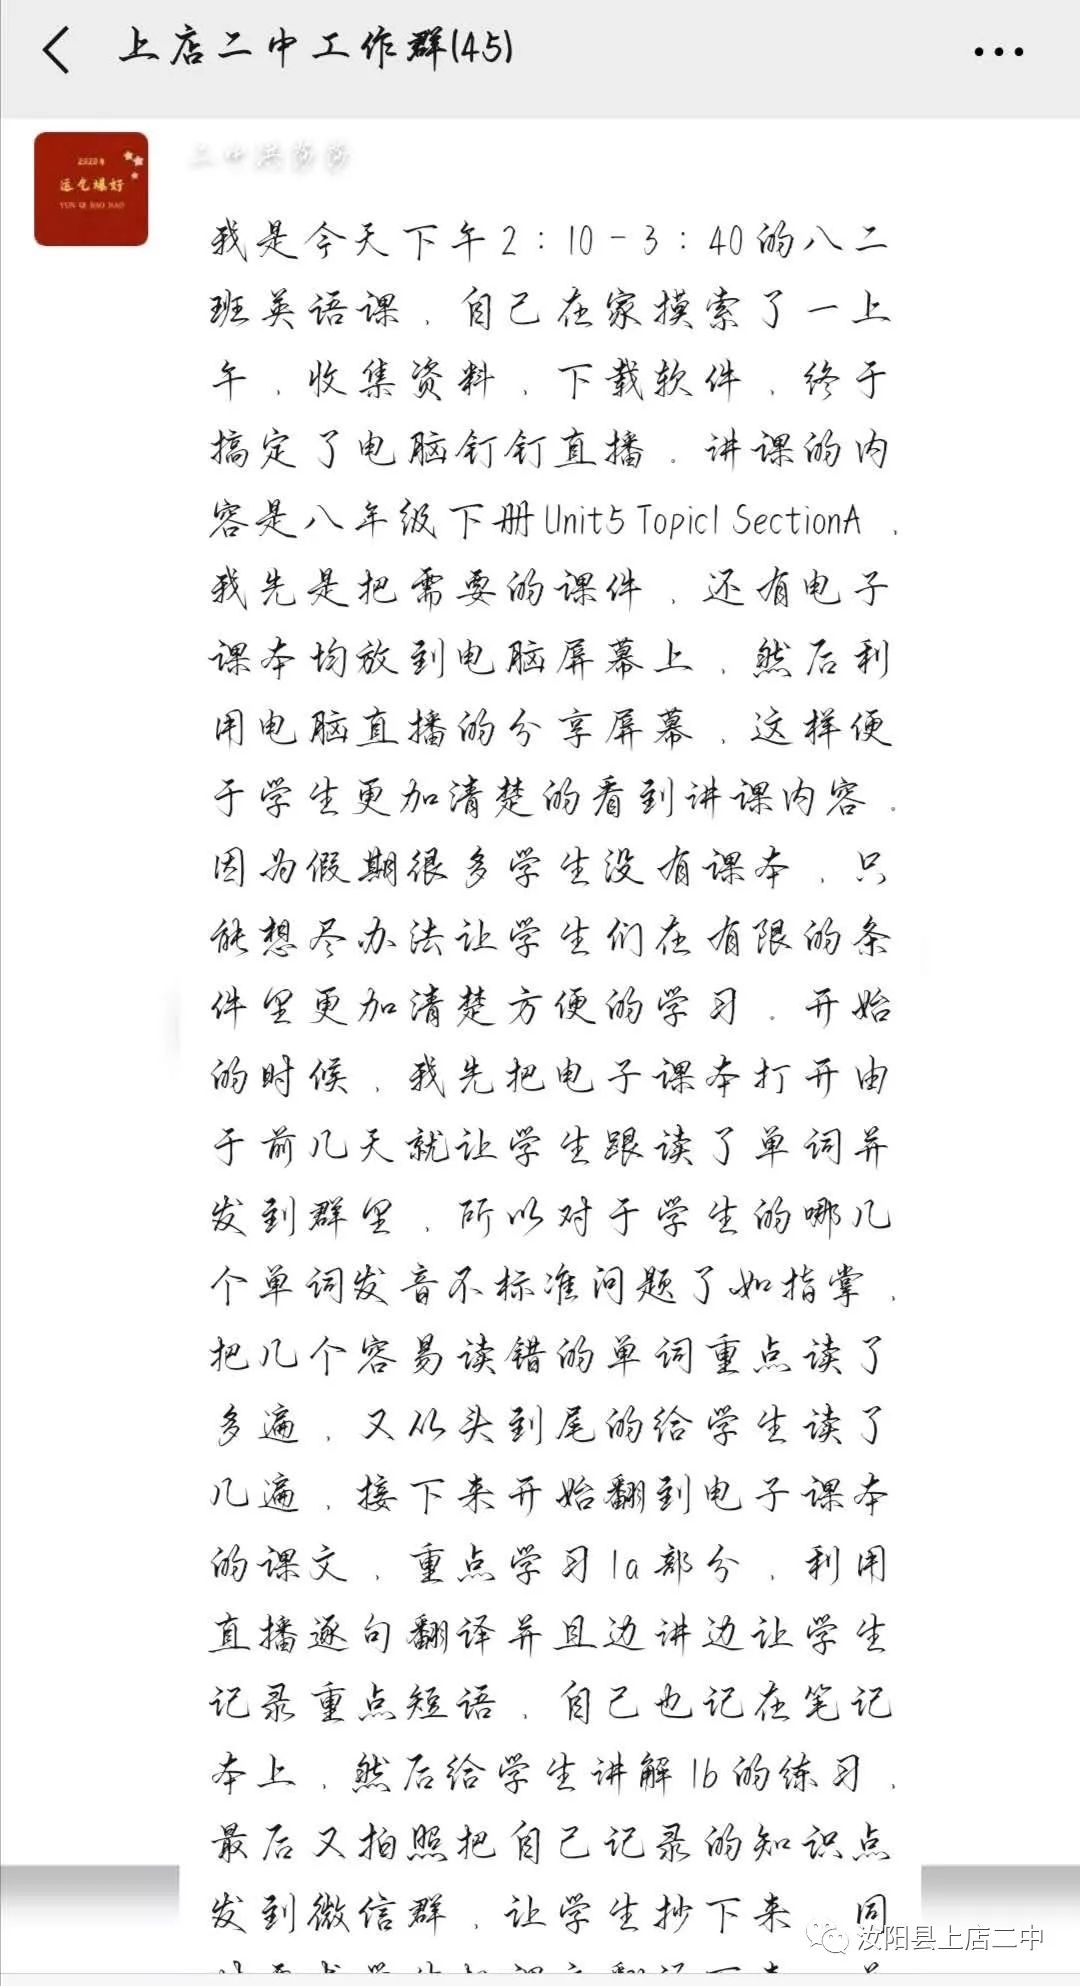 上店二中工作群(45)
2020年
运气爆好
YUN QI BAO HAO
二中洪
我是今天下午2:10-3:40的八二
班英语课，自己在家摸索了一上
午，收集资料，下载软件，终于
搞定了电脑钉钉直播。讲课的内
容是八年级下册Unit5 Topic1 SectionA，
我先是把需要的课件，还有电子
课本均放到电脑屏幕上，然后利
用电脑直播的分享屏幕，这样便
于学生更加清楚的看到讲课内容。
因为假期很多学生没有课本，只
能想尽办法让学生们在有限的条
件里更加清楚方便的学习。开始
的时候，我先把电子课本打开由
于前几天就让学生跟读了单词并
发到群里，所以对于学生的哪几
个单词发音不标准问题了如指掌，
把几个容易读错的单词重点读了
多遍，又从头到尾的给学生读了
几遍，接下来开始翻到电子课本
的课文，重点学习1a部分，利用
直播逐句翻译并且边讲边让学生
记录重点短语，自己也记在笔记
本上，然后给学生讲解1b的练习，
最后又拍照把自己记录的知识点
发到微信群，让学生抄下来 同
汝阳县上店二中